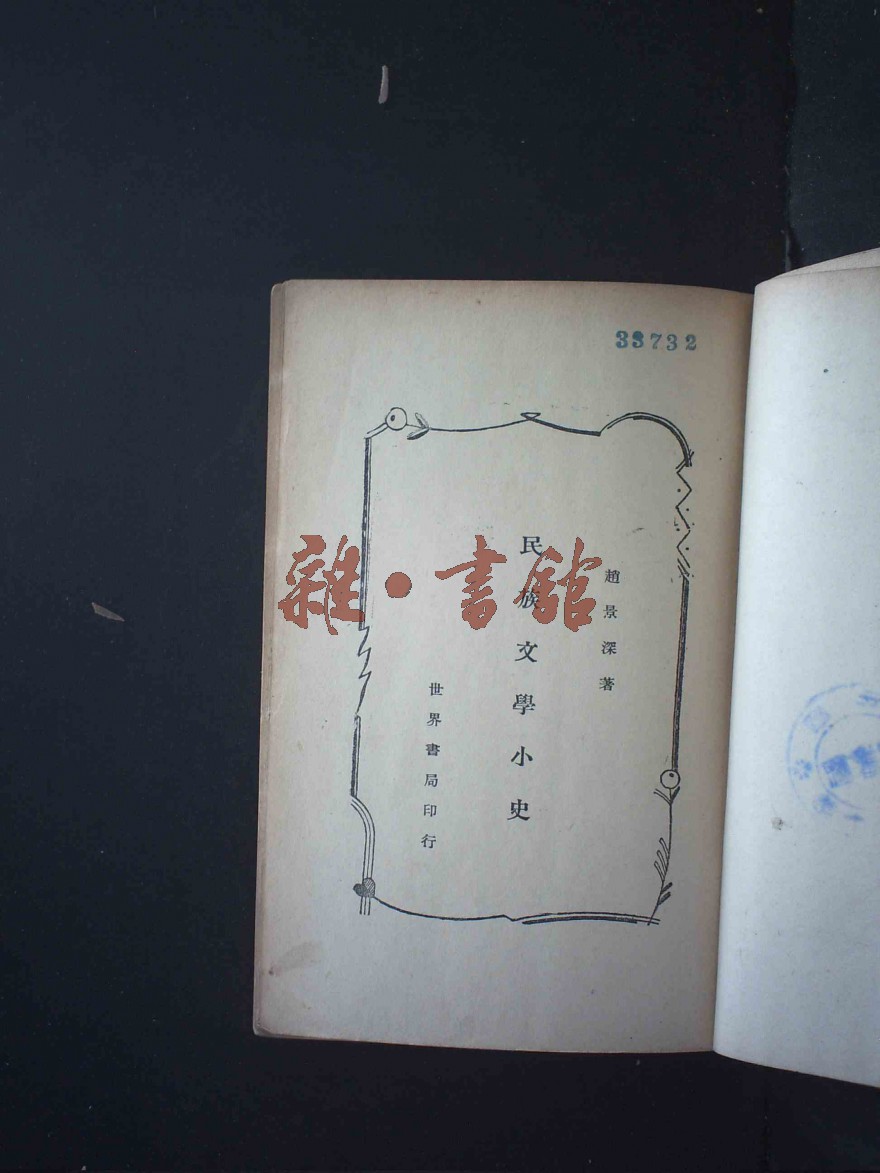 33732
趙景深著
民族文學小史
世界書局印行
雜·書館